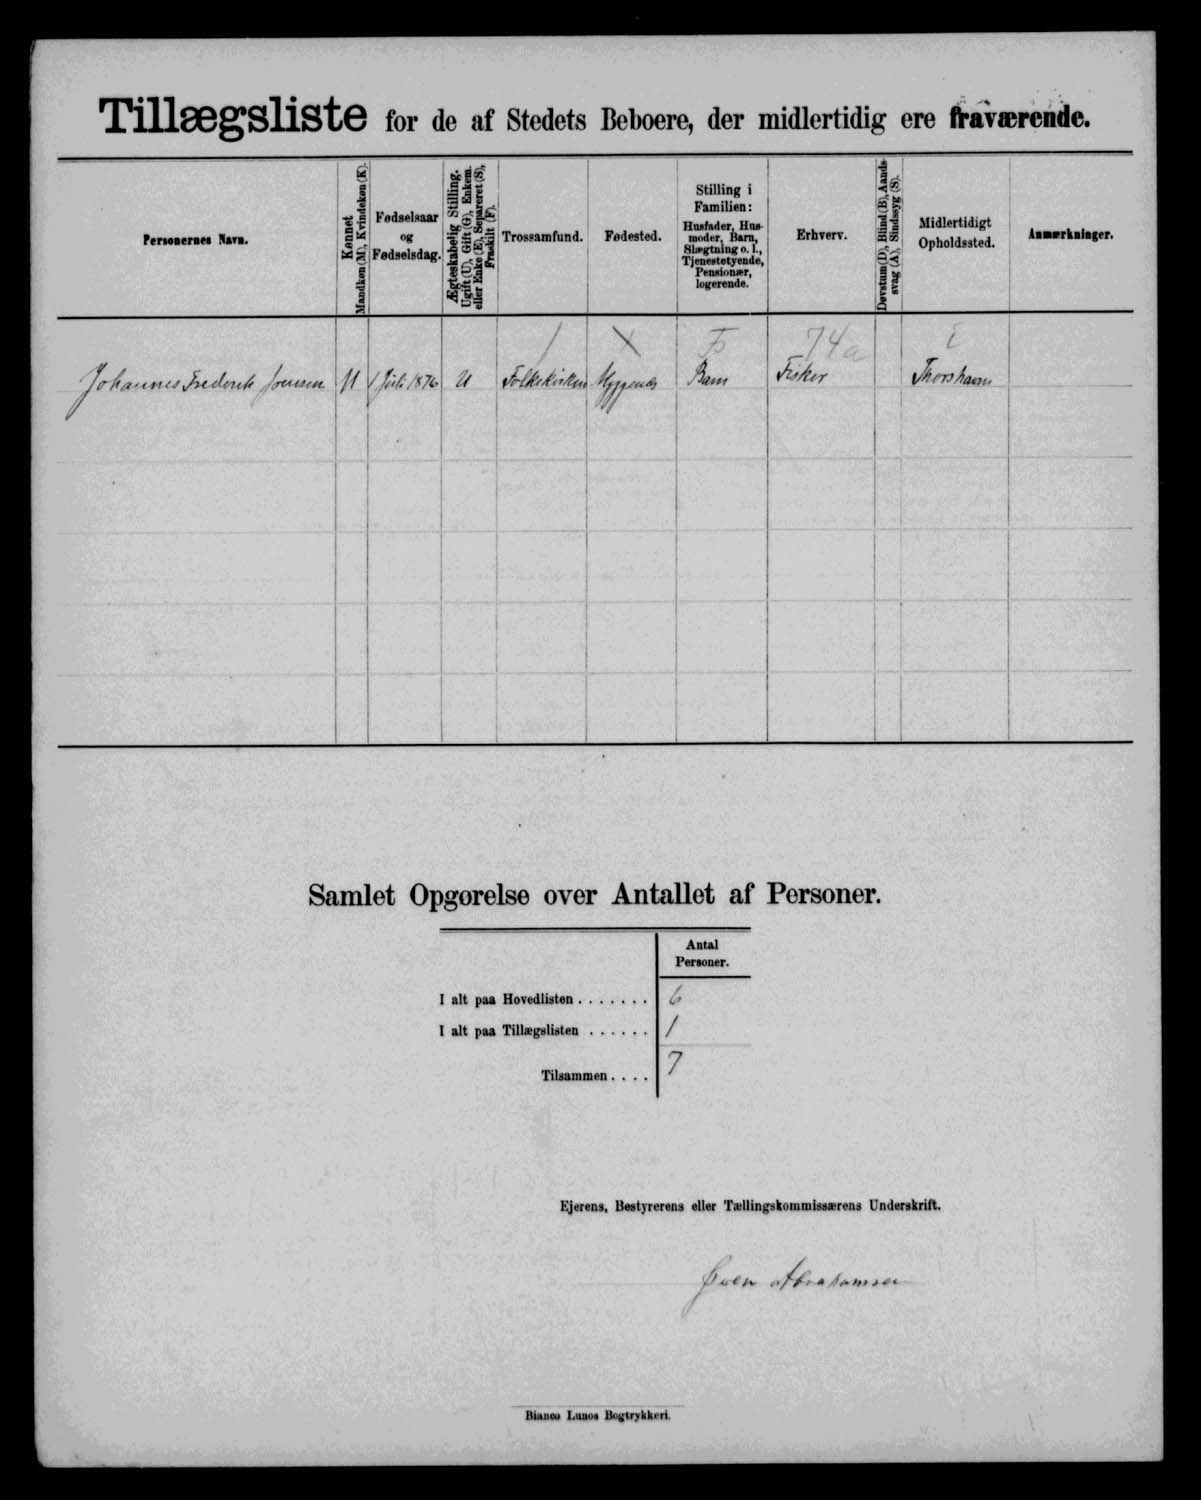 Tillægsliste for de af Stedets Beboere, der midlertidig ere fraværende.
Personernes Navn.
Kønnet
Mandkøn (M), Kvindekøn (K).
Fødselsaar
og
Fødselsdag.
Ægteskabelig Stilling.
Ugift (U), Gift (G), Enkem.
eller Enke (E), Separeret (S),
Fraskilt (F).
Trossamfund.
Fødested.
Stilling i
Familien:
Husfader, Hus-
moder, Barn,
Slægtning o. l.,
Tjenestetyende,
Pensionær,
logerende.
Erhverv.
Døvstum (D), Blind (B), Aands-
svag (A), Sindssyg (S).
Midlertidigt
Opholdssted.
Anmærkninger.
74a
Johannes Frederik Joensen M 1 Juli 1876 U Folkekirken Myggenæs Barn Fisker Thorshavn
Samlet Opgørelse over Antallet af Personer.
Antal
Personer.
I alt paa Hovedlisten . . . . . . . 6
I alt paa Tillægslisten . . . . . . 1
Tilsammen . . . . 7
Ejerens, Bestyrerens eller Tællingskommissærens Underskrift.
Abrahamsen
Bianco Lunos Bogtrykkeri.